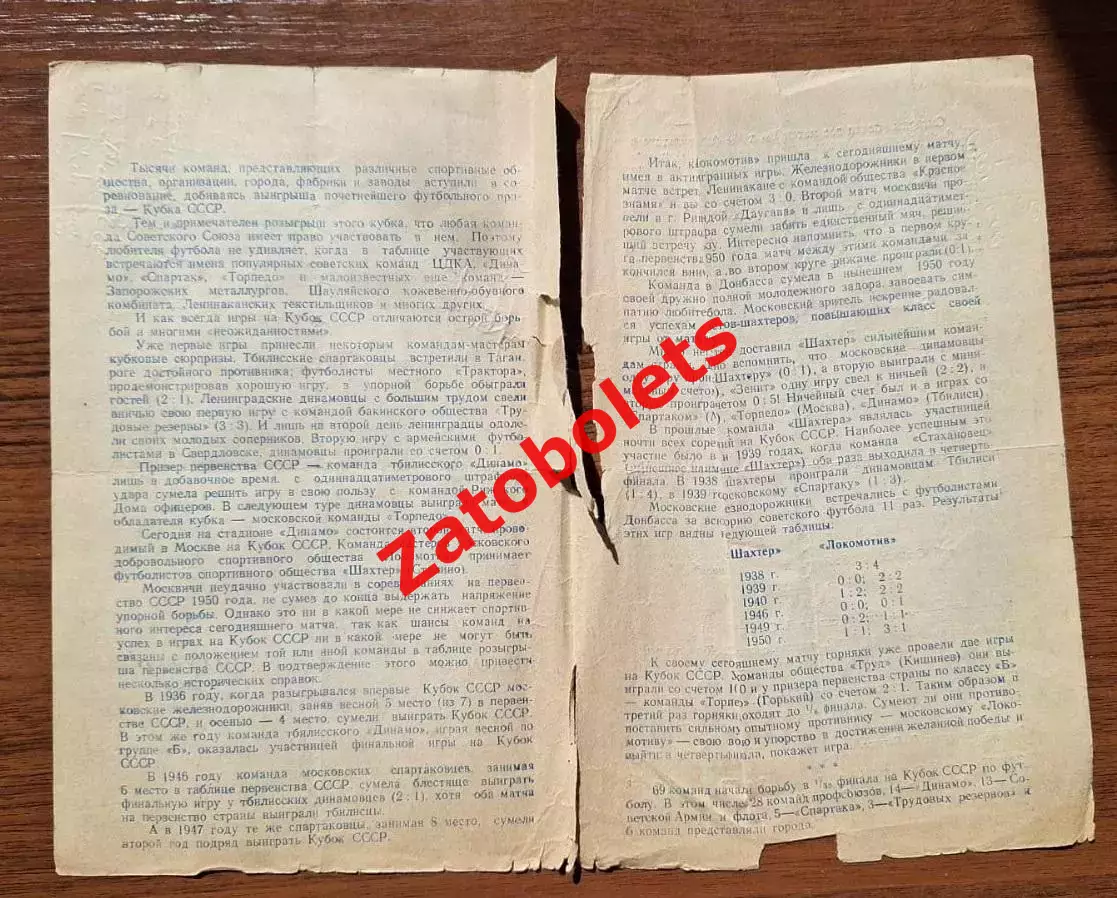 Тысячи команд, представляющих различные спортивные об-
щества, организации, города, фабрики и заводы вступили в со-
ревнование, добиваясь выигрыша почетнейшего футбольного при-
за — Кубка СССР.
Тем и примечателен розыгрыш этого кубка, что любая коман-
да Советского Союза имеет право участвовать в нем. Поэтому
любителя футбола не удивляет, когда в таблице участвующих
встречаются имена популярных советских команд ЦДКА, «Дина-
мо», «Спартак», «Торпедо» и малоизвестных еще команд —
Запорожских металлургов, Шауляйского кожевенно-обувного
комбината, Ленинаканских текстильщиков и многих других.
И как всегда игры на Кубок СССР отличаются острой борь-
бой и многими «неожиданностями».
Уже первые игры принесли некоторым командам-мастерам
кубковые сюрпризы. Тбилисские спартаковцы встретили в Таган-
роге достойного противника; футболисты местного «Трактора»,
продемонстрировав хорошую игру, в упорной борьбе обыграли
гостей (2 : 1). Ленинградские динамовцы с большим трудом свели
вничью свою первую игру с командой бакинского общества «Тру-
довые резервы» (3 : 3). И лишь на второй день ленинградцы одоле-
ли своих молодых соперников. Вторую игру с армейскими футбо-
листами в Свердловске, динамовцы проиграли со счетом 0 : 1.
Призер первенства СССР — команда тбилисского «Динамо»
лишь в добавочное время, с одиннадцатиметрового штраф
удара сумела решить игру в свою пользу с командой Рижского
Дома офицеров. В следующем туре динамовцы выиграли
обладателя кубка — московской команды «Торпедо»
Сегодня на стадионе «Динамо» состоится второй матч прово-
димый в Москве на Кубок СССР. Команда мастеров московского
добровольного спортивного общества «Локомотив» принимает
футболистов спортивного общества «Шахтер» (Сталино).
Москвичи неудачно участвовали в соревнованиях на первен-
ство СССР 1950 года, не сумев до конца выдержать напряжение
упорной борьбы. Однако это ни в какой мере не снижает спортив-
ного интереса сегодняшнего матча, так как шансы команд на
успех в играх на Кубок СССР ни в какой мере не могут быть
связаны с положением той или иной команды в таблице розыгры-
ша первенства СССР. В подтверждение этого можно привести
несколько исторических справок.
В 1936 году, когда разыгрывался впервые Кубок СССР мос-
ковские железнодорожники, заняв весной 5 место (из 7) в первен-
стве СССР, и осенью — 4 место, сумели выиграть Кубок СССР.
В этом же году команда тбилисского «Динамо», играя весной по
группе «Б», оказалась участницей финальной игры на Кубок
СССР.
В 1946 году команда московских спартаковцев, занимая
6 место в таблице первенства СССР, сумела блестяще выиграть
финальную игру у тбилисских динамовцев (2 : 1), хотя оба матча
на первенство страны выиграли тбилисцы.
А в 1947 году те же спартаковцы, занимая 8 место, сумели
второй год подряд выиграть Кубок СССР.
Итак, «Локомотив» пришла к сегодняшнему матчу,
имея в акти гранных игры. Железнодорожники в первом
матче встрет Ленинакане с командой общества «Красное
знамя» и вы со счетом 3 : 0. Второй матч москвичи про-
вели в г. Ри дой «Даугава» и лишь с одиннадцатимет-
рового штра ра сумели забить единственный мяч, решив-
ший встречу зу. Интересно напомнить, что в первом кру-
га первенств 950 года матч между этими командами за-
кончился вни, а во втором круге рижане проиграли (0 : 1).
Команда Донбасса сумела в нынешнем 1950 году
своей дружно полной молодежного задора, завоевать сим-
патию любите бола. Московский зритель искренне радовал-
ся успехам тов-шахтеров, повышающих класс своей
игры от мат
М доставил «Шахтер» сильнейшим коман-
дам вспомнить, что московские динамовцы
«Шахтеру» (0 : 1), а вторую выиграли с мини-
счето), «Зенит» одну игру свел к ничьей (2 : 2), а
втор проигр четом 0 : 5! Ничейный счет был и в играх со
«Спартаком» «Торпедо» (Москва), «Динамо» (Тбилиси).
В прошлые команда «Шахтера» являлась участницей
почти всех соре на Кубок СССР. Наиболее успешным это
участие было в и 1939 годах, когда команда «Стахановец»
«Шахтер») оба раза выходила в четверть-
финала. В 1938 шахтеры проиграли динамовцам Тбилиси
(1 : 4), в 1939 г осковскому «Спартаку» (1 : 3).
Московские езнодорожники встречались с футболистами
Донбасса за вс орию советского футбола 11 раз. Результаты
этих игр видны едующей таблицы:
«Шахтер» «Локомотив»
1938 г. 3 : 4
1939 г. 0 : 0; 2 : 2
1940 г. 1 : 2; 2 : 2
1946 г. 0 : 0; 0 : 1
1949 г. 0 : 2; 1 : 1
1950 г. 1 : 1; 3 : 1
К своему сего яшнему матчу горняки уже провели две игры
на Кубок СССР. команды общества «Труд» (Кишинев) они вы-
играли со счетом 0 и у призера первенства страны по классу «Б»
— команды «Торпе» (Горький) со счетом 2 : 1. Таким образом в
третий раз горняки ходят до 1/8 финала. Сумеют ли они противо-
поставить сильному опытному противнику — московскому «Локо-
мотиву» — свою вол и упорство в достижении желанной победы и
выйти в четвертьфинала, покажет игра.
* * *
69 команд начали борьбу в финала на Кубок СССР по фут-
болу. В этом числе 28 команд профсоюзов, 14—«Динамо», 13—Со-
ветской Армии и флота, 5—«Спартака», 3—«Трудовых резервов» и
6 команд представляли города.
Zatobolets